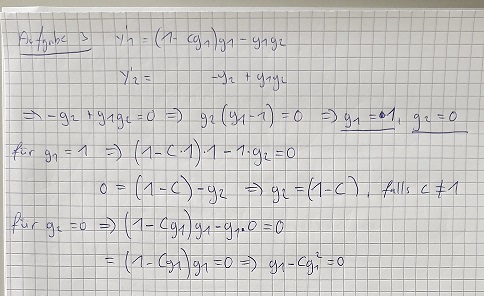 Aufgabe 3 y'1 = (1 - cy1)y1 - y1y2
y'2 = -y2 + y1y2
⇒ -y2 + y1y2 = 0 ⇒ y2(y1-1) = 0 ⇒ y1 = 1, y2 = 0
für y1 = 1 ⇒ (1 - C·1)·1 - 1·y2 = 0
0 = (1 - C) - y2 ⇒ y2 = (1 - C), falls c ≠ 1
für y2 = 0 ⇒ (1 - Cy1)y1 - y1·0 = 0
= (1 - Cy1)y1 = 0 ⇒ y1 - Cy1² = 0